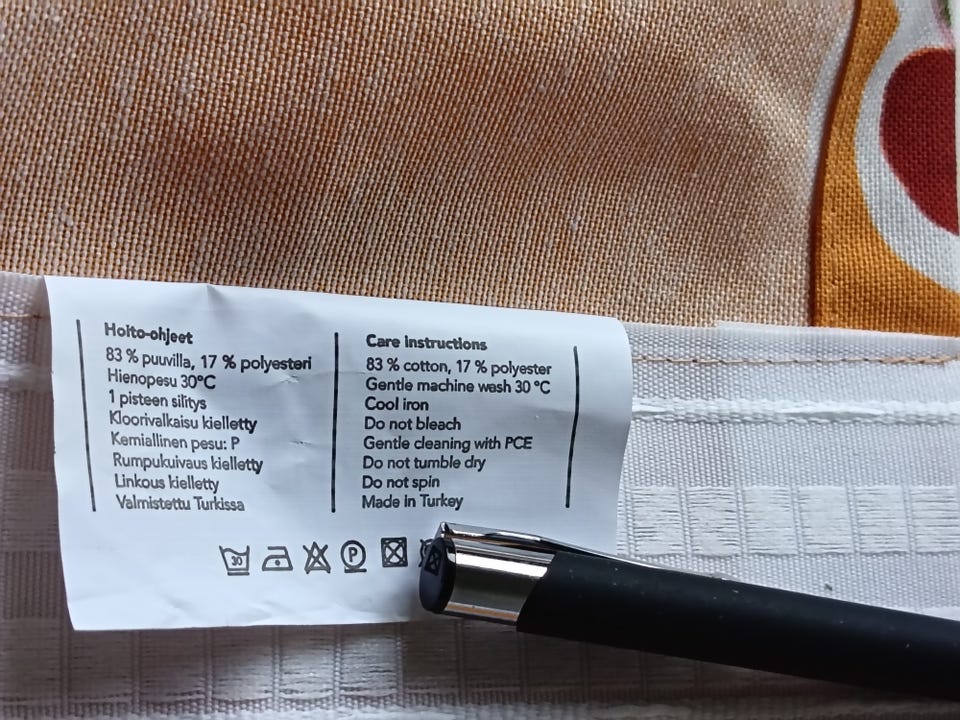 Hoito-ohjeet
83 % puuvilla, 17 % polyesteri
Hienopesu 30°C
1 pisteen silitys
Kloorivalkaisu kielletty
Kemiallinen pesu: P
Rumpukuivaus kielletty
Linkous kielletty
Valmistettu Turkissa
Care instructions
83 % cotton, 17 % polyester
Gentle machine wash 30 °C
Cool iron
Do not bleach
Gentle cleaning with PCE
Do not tumble dry
Do not spin
Made in Turkey
30 P